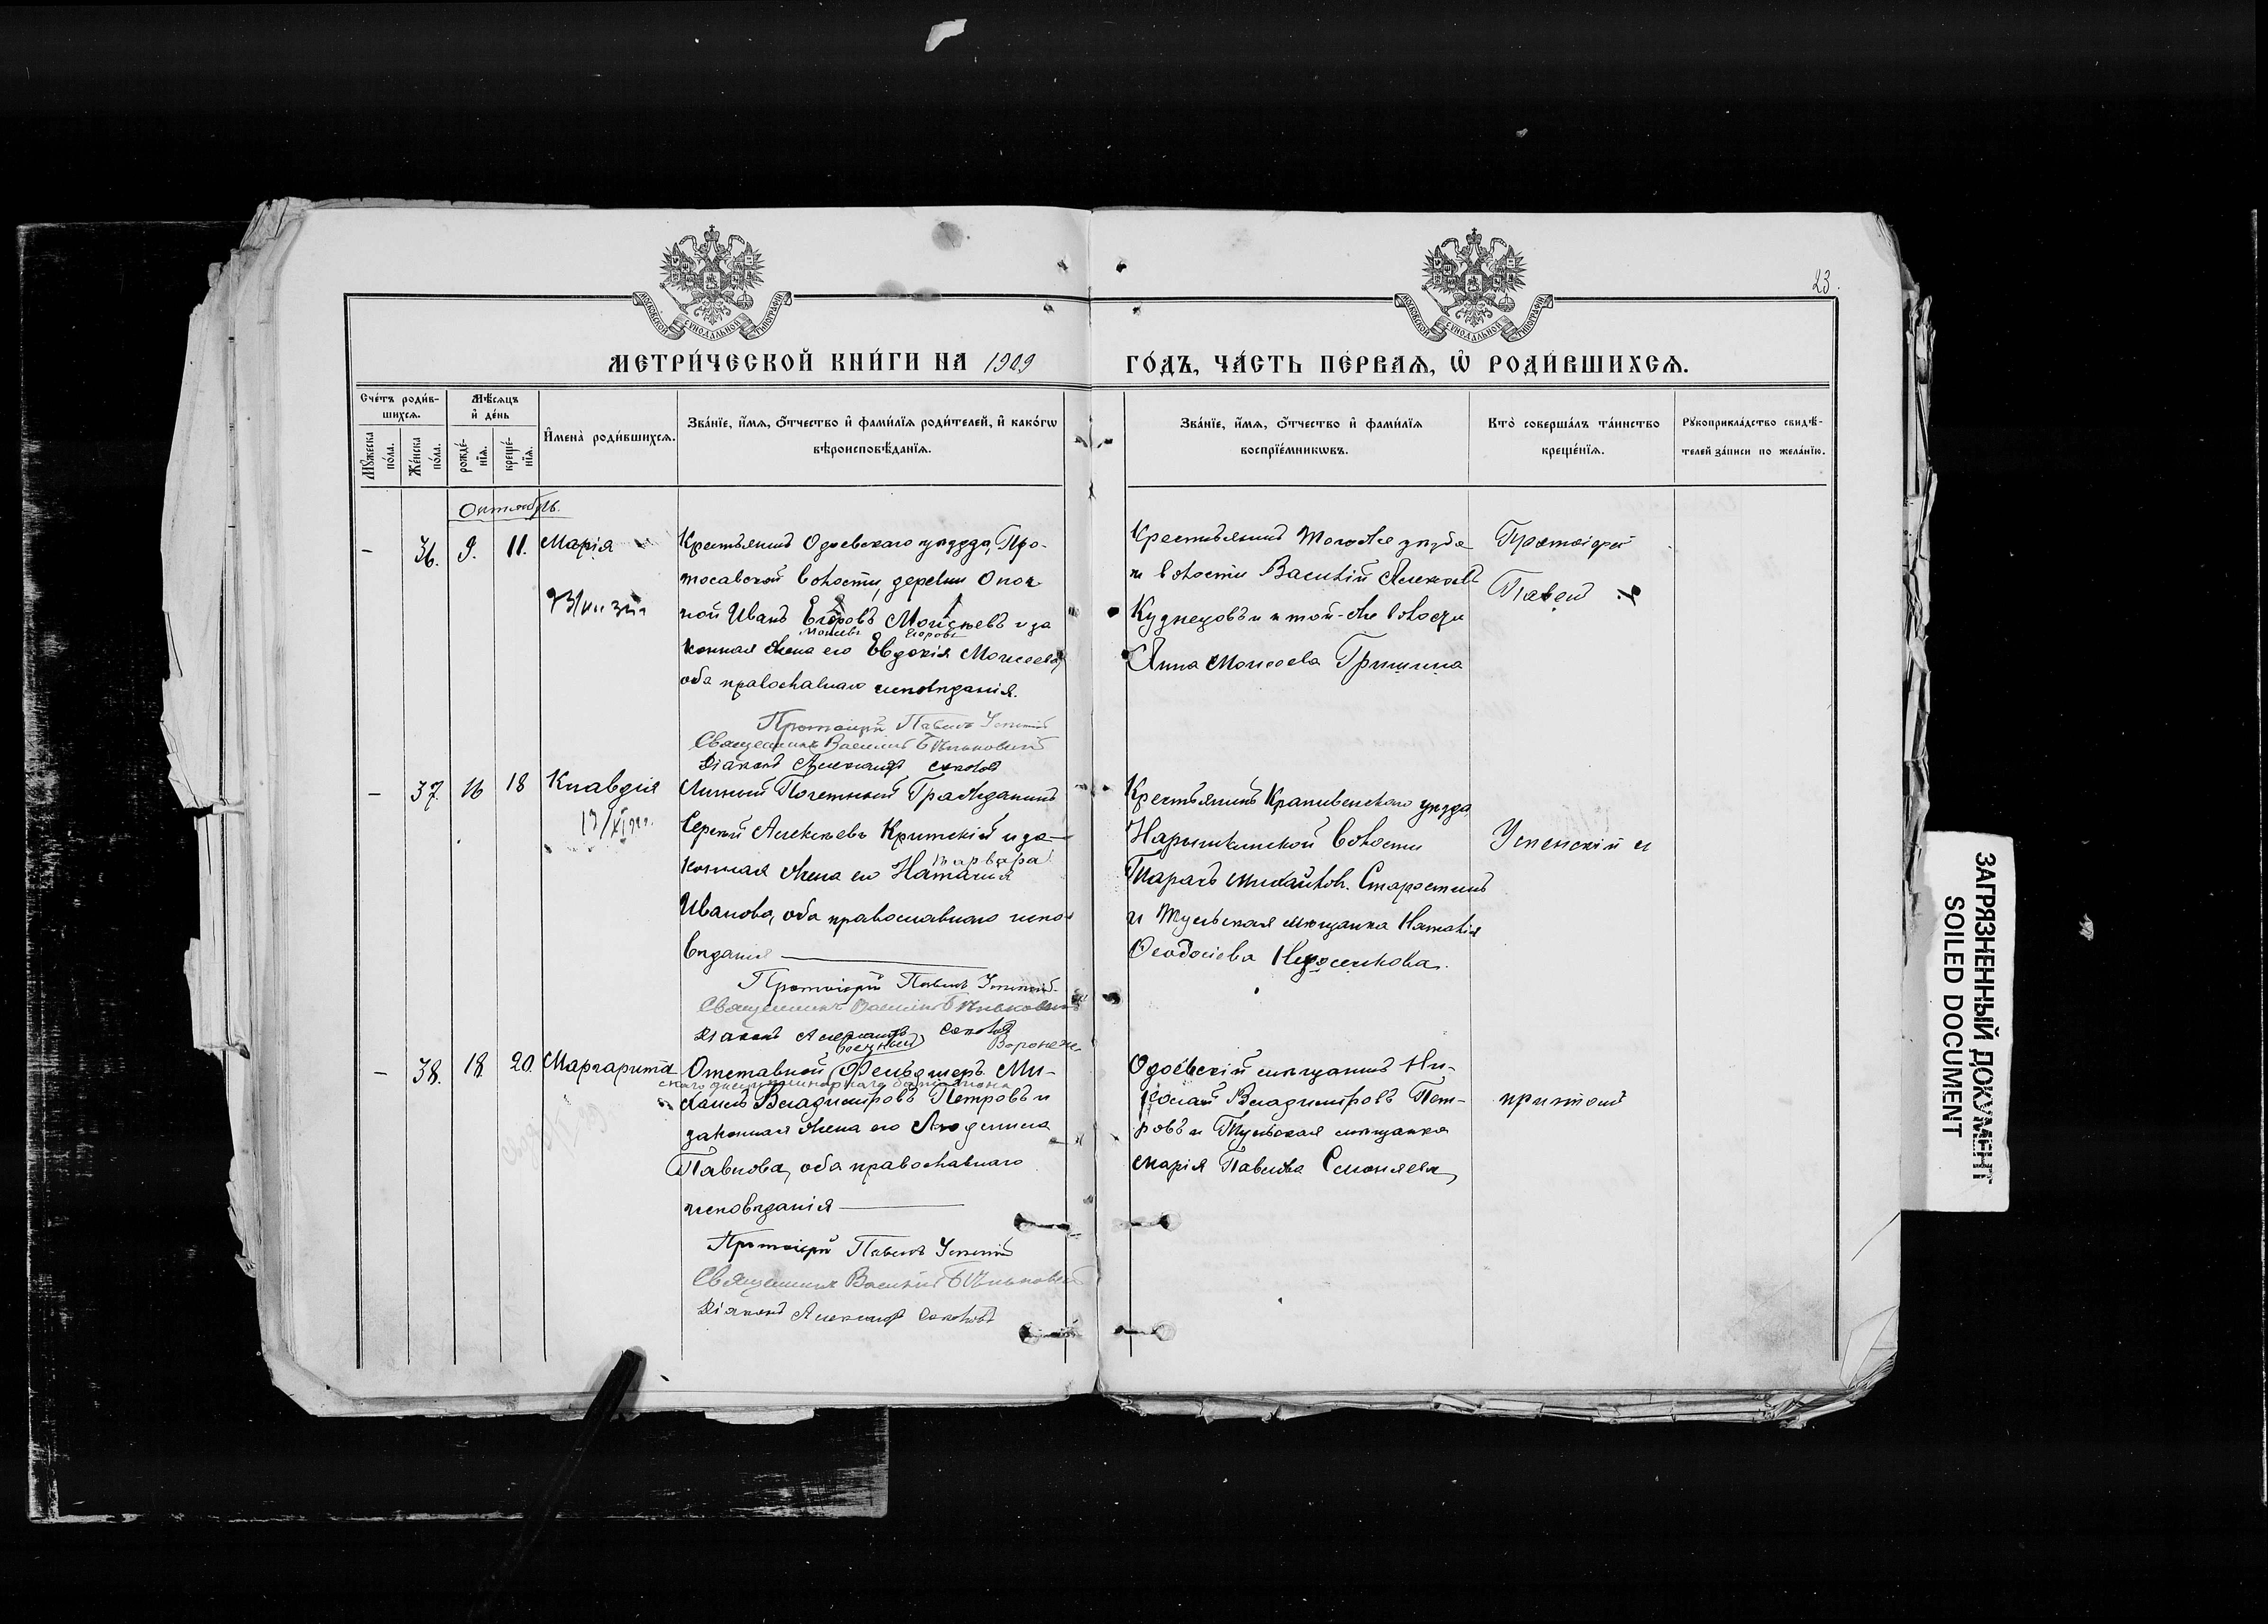 23.
МОСКОВСКОЙ СѴНОДАЛЬНОЙ ТИПОГРАФІИ
МОСКОВСКОЙ СѴНОДАЛЬНОЙ ТИПОГРАФІИ
МЕТРИ́ЧЕСКОЙ КНИ́ГИ НА 1909 ГО́ДЪ, ЧА́СТЬ ПЕ́РВАѦ, Ѡ҆ РОДИ́ВШИХСѦ.
Сче́тъ роди́в-
шихсѧ.
Мꙋ́жеска по́ла.
Же́нска по́ла.
Мѣ́сѧцъ
и҆ де́нь
рожде́-
нїѧ.
креще́-
нїѧ.
И҆мена̀ роди́вшихсѧ.
Зва́нїе, и҆́мѧ, ѻ҆́тчество и҆ фами́лїѧ роди́телей, и҆ како́гѡ
вѣроисповѣ́данїѧ.
Зва́нїе, и҆́мѧ, ѻ҆́тчество и҆ фами́лїѧ
воспрїе́мникѡвъ.
Кто̀ соверша́лъ та́инство
креще́нїѧ.
Рꙋкоприкла́дство свидѣ́-
телей за́писи по жела́нїю.
Октябрь.
– 36. 9. 11. Марія
Крестьянинъ Одоевскаго уѣзда, Про-
тасавской волости, деревни Опоч-
ной Иванъ Егоровъ Моисѣевъ и за
Моисеевъ Егоровъ
конная жена его Евдокія Моисеева,
оба православнаго исповѣданія.
Протоіерей Павелъ Успенскій
Священникъ Василій
Діаконъ Александръ Соколовъ
Крестьянинъ того-же уѣзда
и волости Василій Алексѣевъ
Кузнецовъ и той-же волости
Анна Моисеева Гришина
Протоіерей
Павелъ
– 37. 16 18 Клавдія
Личный Почетный Гражданинъ
Сергѣй Алексѣевъ Критскій и за-
Варвара
конная жена его Наталия
Иванова, оба православнаго испо-
вѣданія
Протоіерей Павелъ Успенскій
Священникъ Василій
Діаконъ Александръ Соколовъ
Крестьянинъ Крапивенскаго уѣзда
Нарышкинской волости
Тарасъ Михайлов. Старостинъ
и Тульская мѣщанка Наталія
Ѳеодосіева
Успенскій и
– 38. 18 20. Маргарита
военный Воронеж
Отставной Фельдшеръ Ми-
скаго дисциплинарнаго баталіона
хаилъ Владиміровъ Петровъ и
законная жена его Людмила
Павлова, оба православнаго
исповѣданія
Протоіерей Павелъ Успенскій
Священникъ Василій
Діаконъ Александръ Соколовъ
Одоевскій мѣщанинъ Ни-
колай Владиміровъ Пет-
ровъ и Тульская мѣщанка
Марія Павлова
причтомъ
ЗАГРЯЗНЕННЫЙ ДОКУМЕНТ
SOILED DOCUMENT